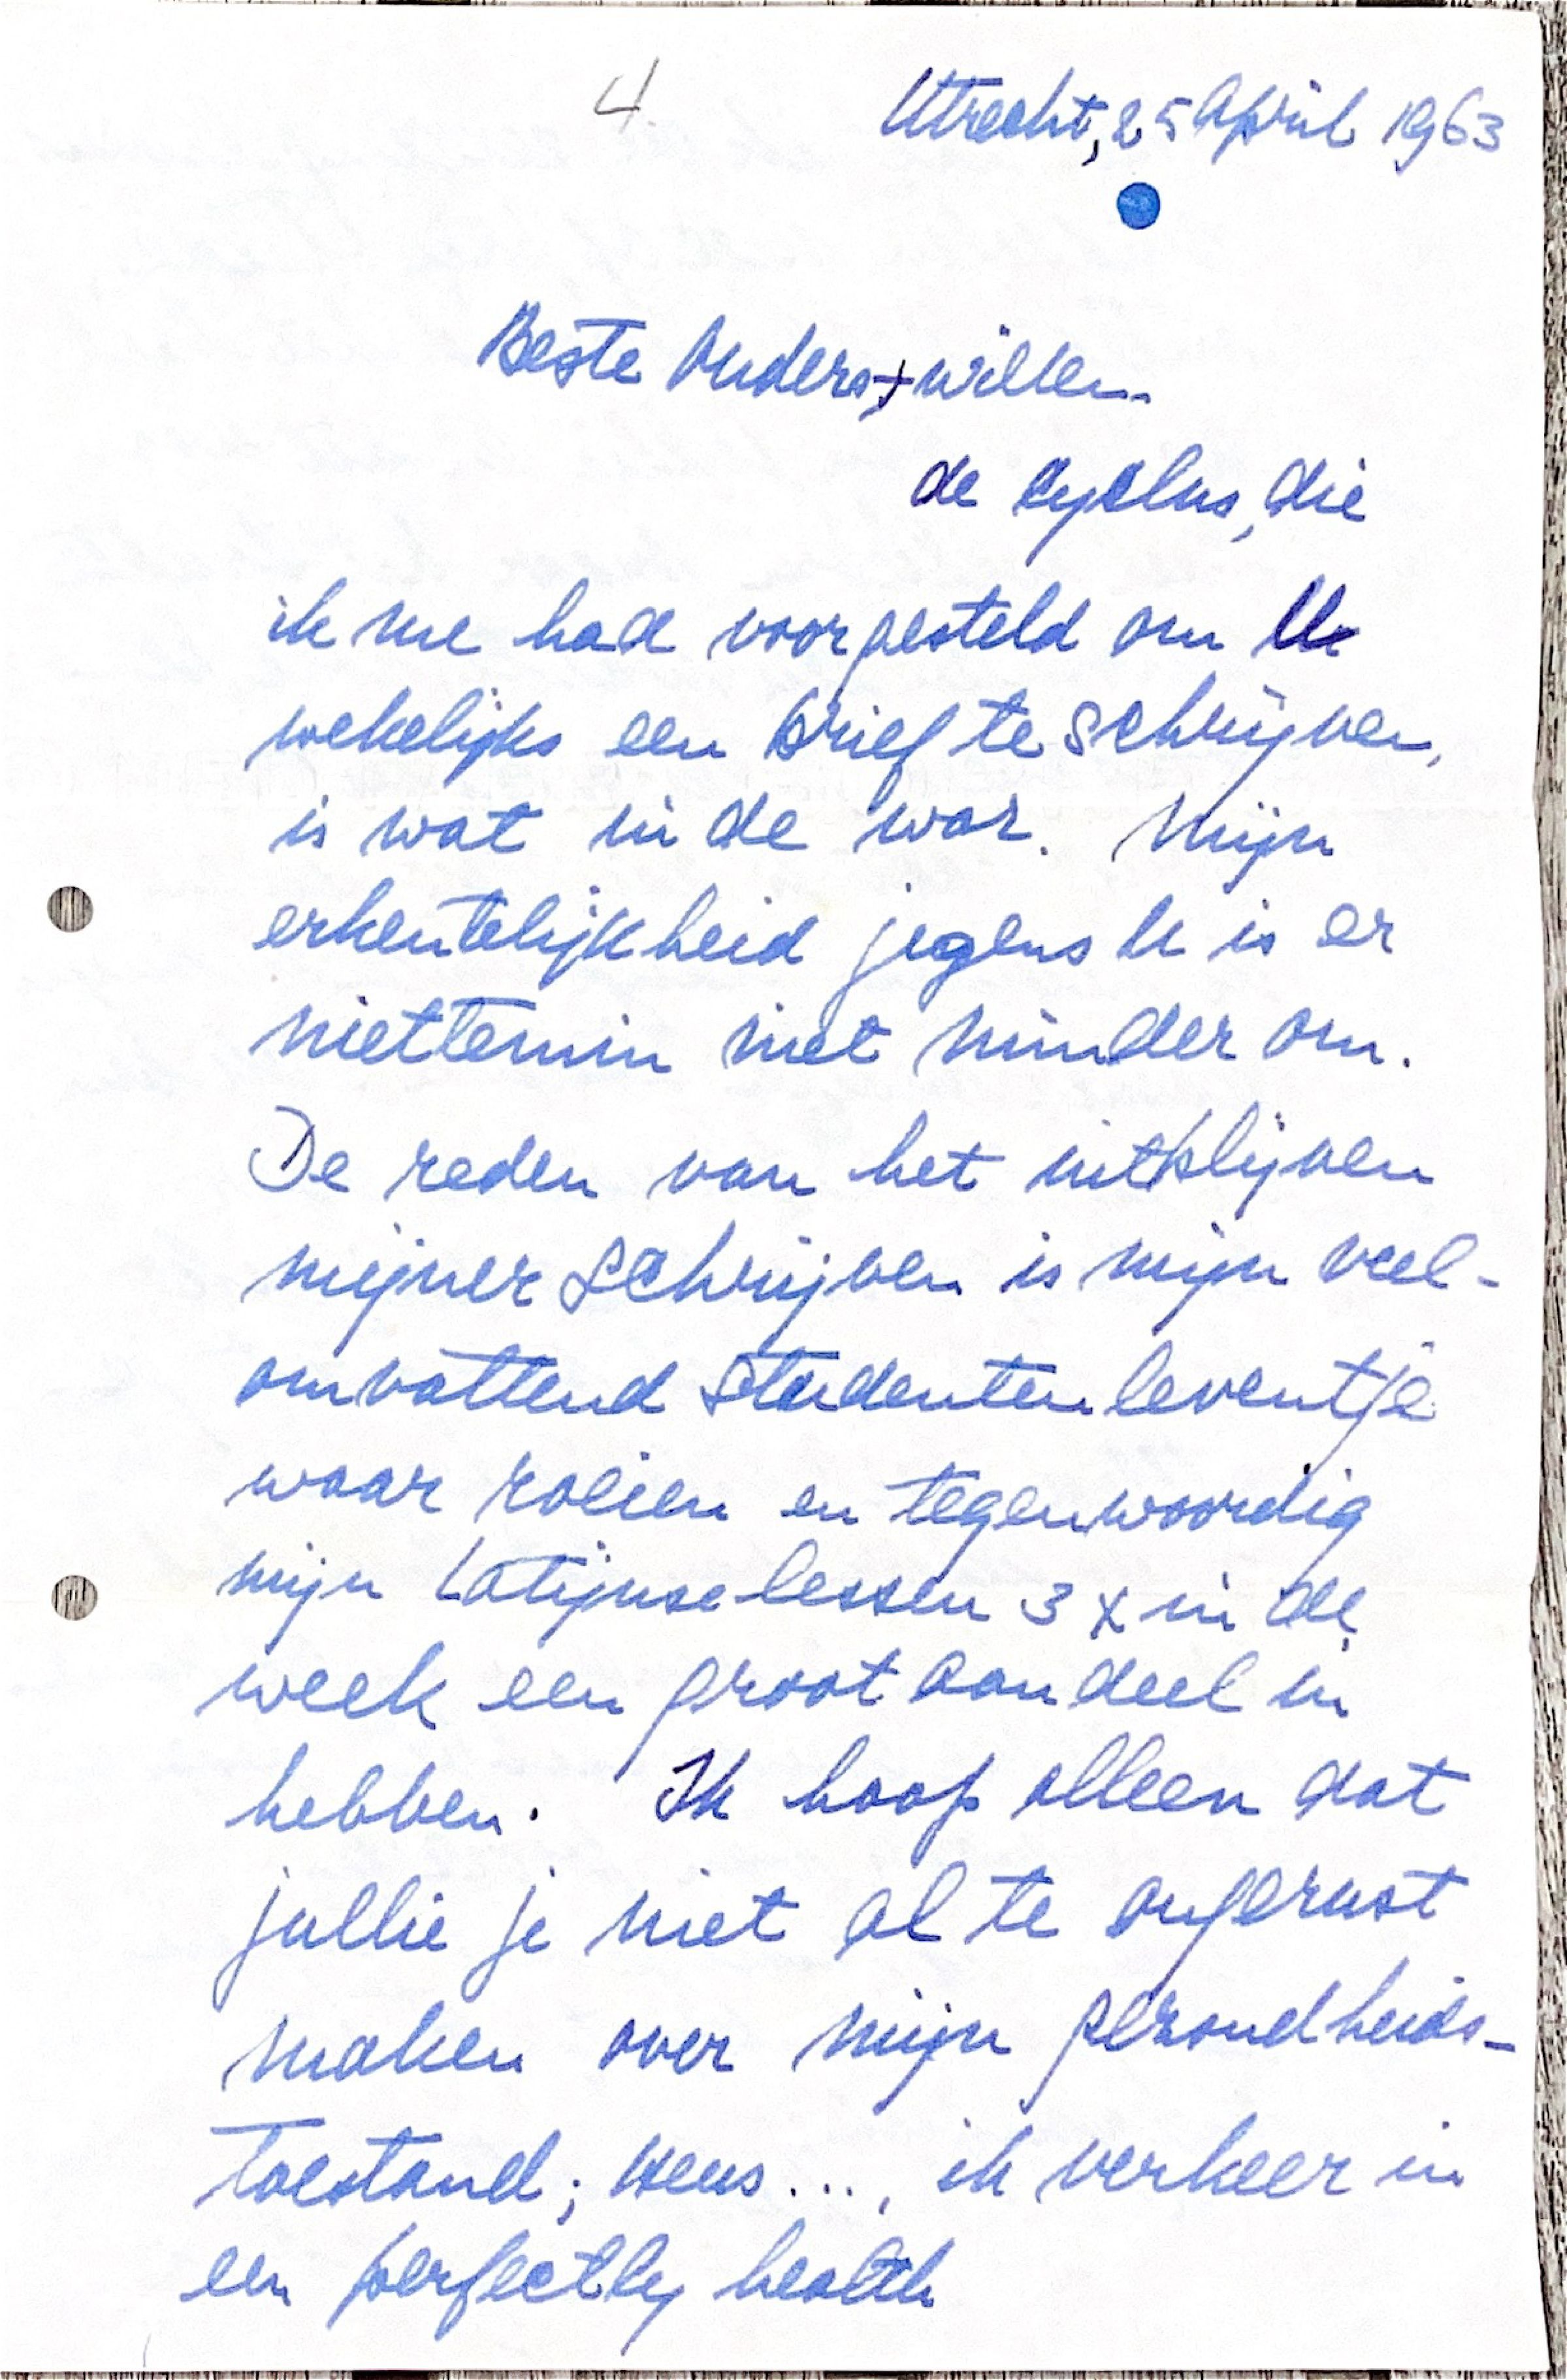 4.
Utrecht, 25 April 1963
Beste Ouders + Willem
de cyclus, die
ik me had voorgesteld om U
wekelijks een brief te schrijven,
is wat in de war. Mijn
erkentelijkheid jegens U is er
niettemin niet minder om.
De reden van het uitblijven
mijner schrijven is mijn veel-
omvattend studentenleventje
waar roeien en tegenwoordig
mijn Latijnse lessen 3 x in de
week een groot aandeel in
hebben. Ik hoop alleen dat
jullie je niet al te ongerust
maken over mijn gezondheids-
toestand; heus ..., ik verkeer in
een perfectly health